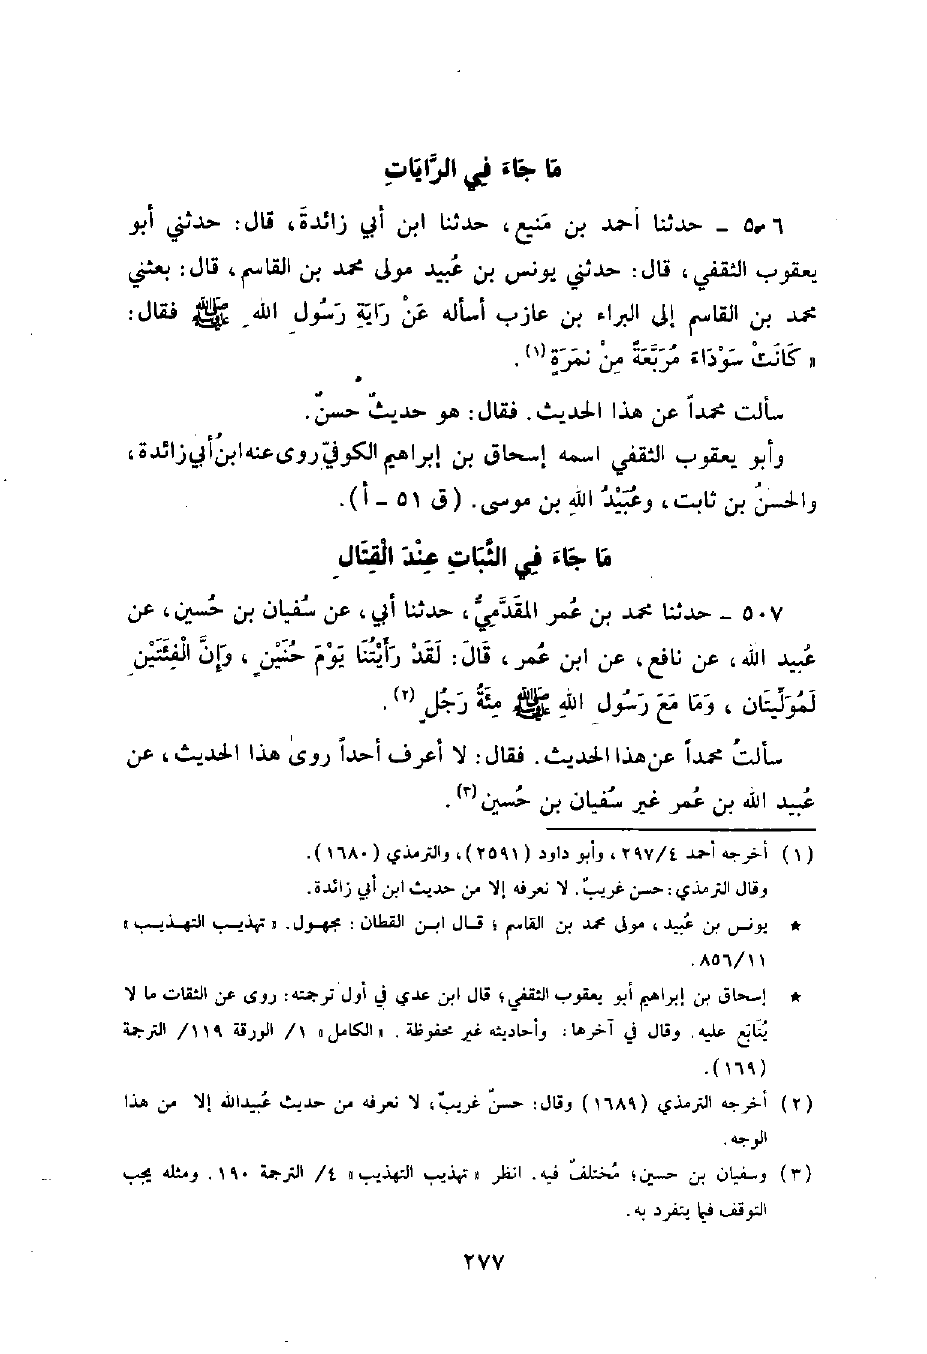 مَا جَاءَ فِي الرَّايَاتِ
٥٠٦ ـ حدثنا أحمد بن مَنيع، حدثنا ابن أبي زائدةَ، قال: حدثني أبو
يعقوب الثقفي، قال: حدثني يونس بن عُبيد مولى محمد بن القاسم، قال: بعثني
محمد بن القاسم إلى البراء بن عازب أسأله عَنْ رَايَةِ رَسُولِ الله ﷺ فقال:
« كَانَتْ سَوْدَاءَ مُرَبَّعَةً مِنْ نَمِرَةٍ (١).
سألت محمداً عن هذا الحديث. فقال: هو حديثٌ حسنٌ.
وأبو يعقوب الثقفي اسمه إسحاق بن إبراهيم الكوفيّ روى عنه ابنُ أبي زائدة،
والحسنُ بن ثابت، وعُبَيْدُ اللهِ بن موسى. (ق ٥١ ـ أ).
مَا جَاءَ فِي الثَّبَاتِ عِنْدَ الْقِتَالِ
٥٠٧ ـ حدثنا محمد بن عمر المقدَّميُّ، حدثنا أبي، عن سُفيان بن حُسين، عن
عُبيد الله، عن نافع، عن ابن عُمر، قَالَ: لَقَدْ رَأَيْتُنَا يَوْمَ حُنَيْنٍ، وَإِنَّ الْفِئَتَيْنِ
لَمُوَلِّيَتَانِ، وَمَا مَعَ رَسُولِ اللهِ ﷺ مِئَةُ رَجُلٍ (٢).
سألتُ محمداً عن هذا الحديث. فقال: لا أعرف أحداً روى هذا الحديث، عن
عُبيد الله بن عُمر غير سُفيان بن حُسين (٣).
(١) أخرجه أحمد ٢٩٧/٤، وأبو داود (٢٥٩١)، والترمذي (١٦٨٠).
وقال الترمذي: حسن غريبٌ. لا نعرفه إلا من حديث ابن أبي زائدة.
★ يونس بن عُبيد، مولى محمد بن القاسم؛ قال ابن القطان: مجهول. «تهذيب التهذيب»
٨٥٦/١١.
★ إسحاق بن إبراهيم أبو يعقوب الثقفي؛ قال ابن عدي في أول ترجمته: روى عن الثقات ما لا
يُتابَع عليه. وقال في آخرها: وأحاديثه غير محفوظة. «الكامل» ١/ الورقة ١١٩/ الترجمة
(١٦٩).
(٢) أخرجه الترمذي (١٦٨٩) وقال: حسنٌ غريبٌ، لا نعرفه من حديث عُبيدالله إلا من هذا
الوجه.
(٣) وسفيان بن حسين؛ مُختلفٌ فيه. انظر «تهذيب التهذيب» ٤/ الترجمة ١٩٠. ومثله يجب
التوقف فيما يتفرد به.
٢٧٧